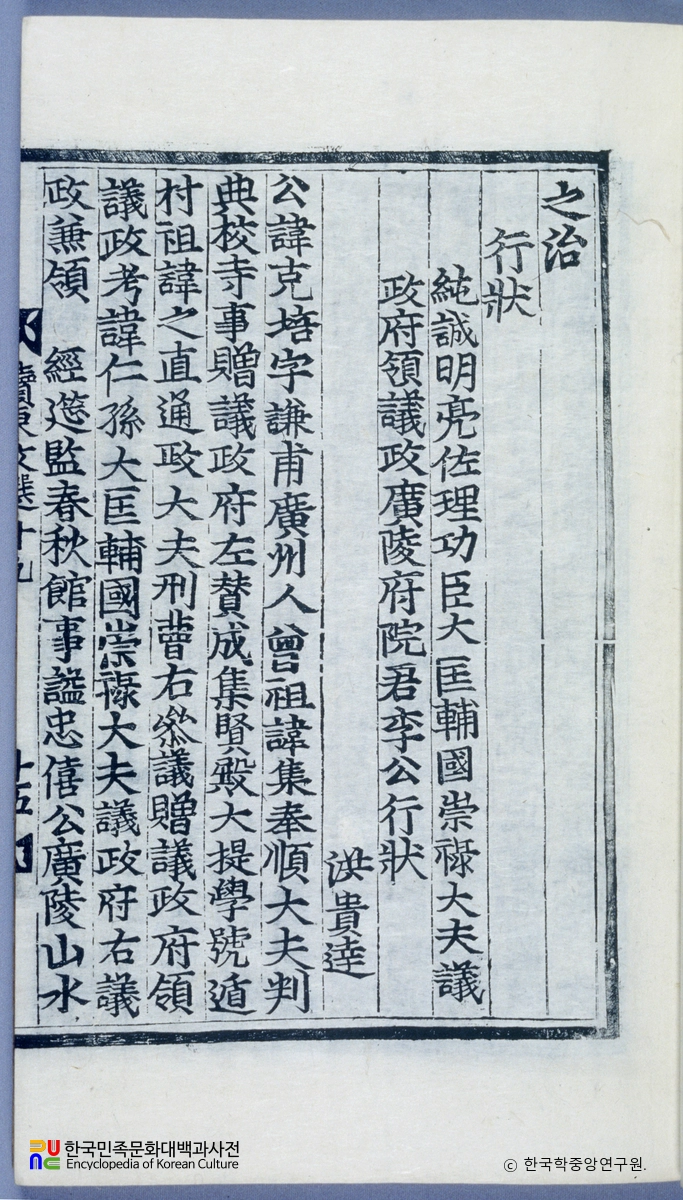 之治
行狀
純誠明亮佐理功臣大匡輔國崇祿大夫議
政府領議政廣陵府院君李公行狀
洪貴達
公諱克培字謙甫廣州人曾祖諱集奉順大夫判
典校寺事贈議政府左贊成集賢殿大提學號遁
村祖諱之直通政大夫刑曹右叅議贈議政府領
議政考諱仁孫大匡輔國崇祿大夫議政府右議
政兼領 經筵監春秋館事謚忠僖公廣陵山水
續東文選十九
十五
한국민족문화대백과사전
Encyclopedia of Korean Culture
ⓒ 한국학중앙연구원.